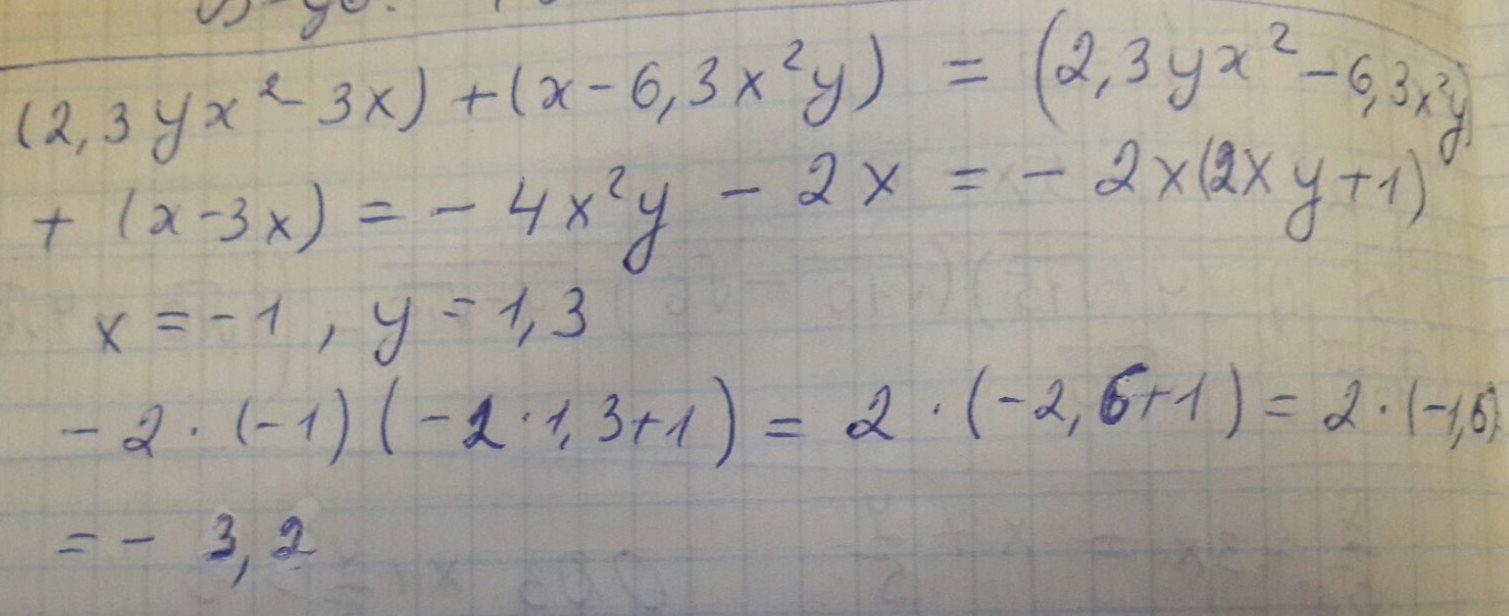 (2,3yx² - 3x) + (x - 6,3x²y) = (2,3yx² - 6,3x²y)
+ (x - 3x) = - 4x²y - 2x = - 2x(2xy + 1)
x = -1, y = 1,3
- 2 · (-1)(-2 · 1,3 + 1) = 2 · (-2,6 + 1) = 2 · (-1,6)
= - 3,2